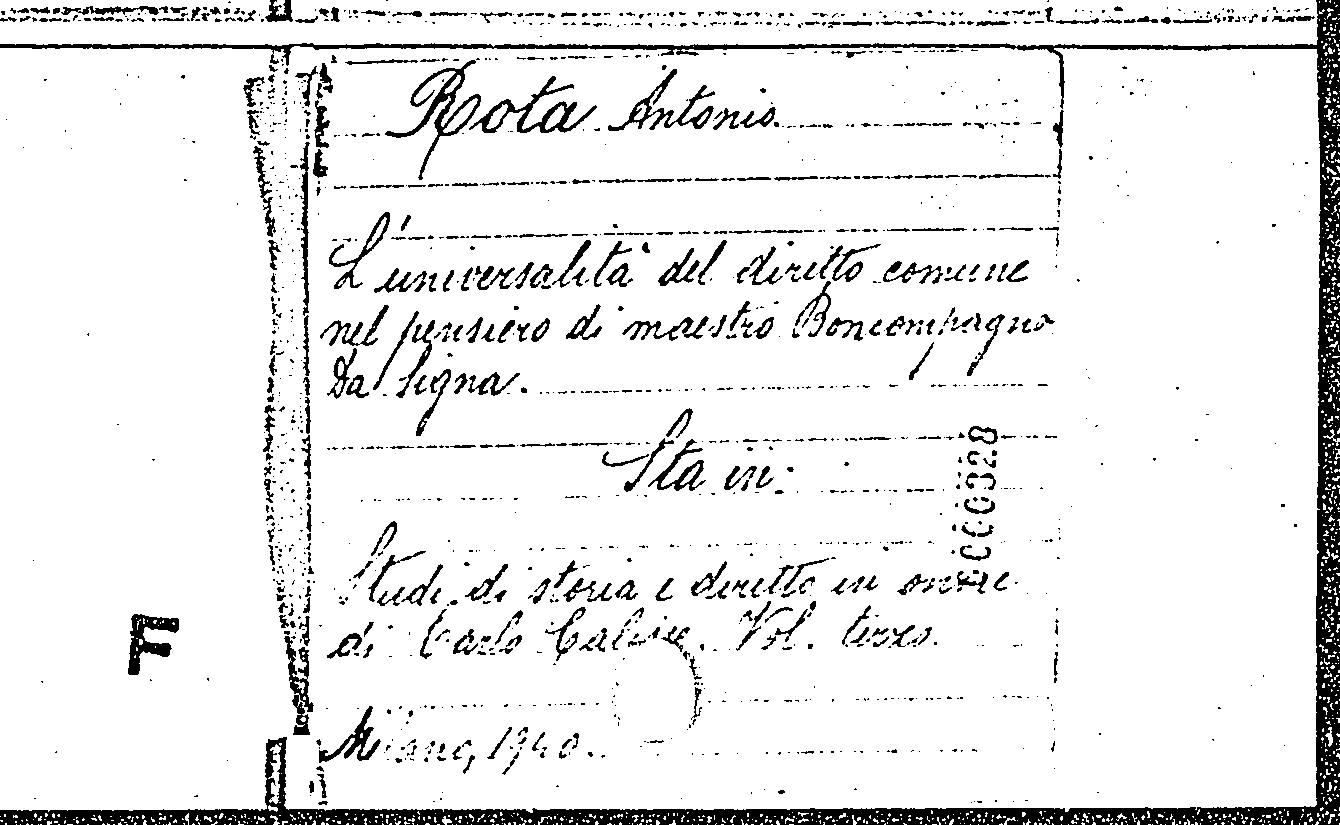 Rota Antonio
L'universalità del diritto comune
nel pensiero di maestro Boncompagno
da Signa.
Sta in:
Studi di storia e diritto in onore
di Carlo Calisse. Vol. terzo.
Milano, 1940.
0000328
F